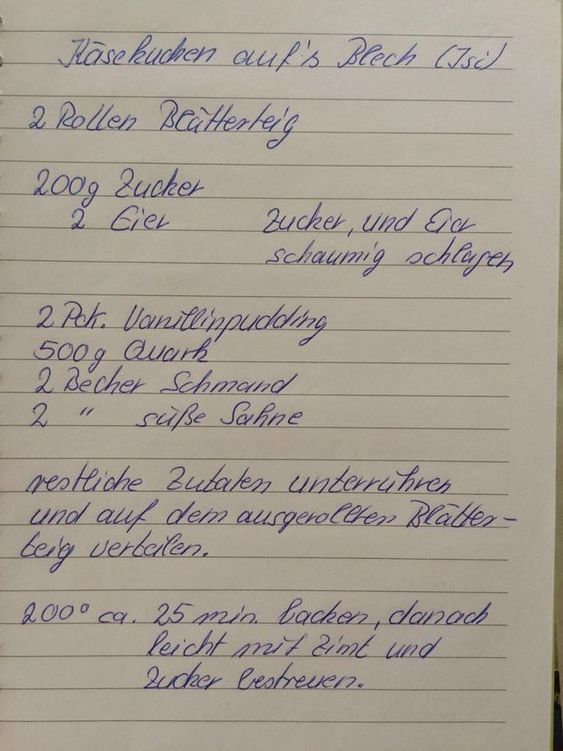 Käsekuchen auf's Blech (Isi)
2 Rollen Blätterteig
200g Zucker
2 Eier Zucker, und Eier
schaumig schlagen
2 Pck. Vanillinpudding
500g Quark
2 Becher Schmand
2 " süße Sahne
restliche Zutaten unterrühren
und auf dem ausgerollten Blätter-
teig verteilen.
200° ca. 25 min. backen, danach
leicht mit Zimt und
Zucker bestreuen.